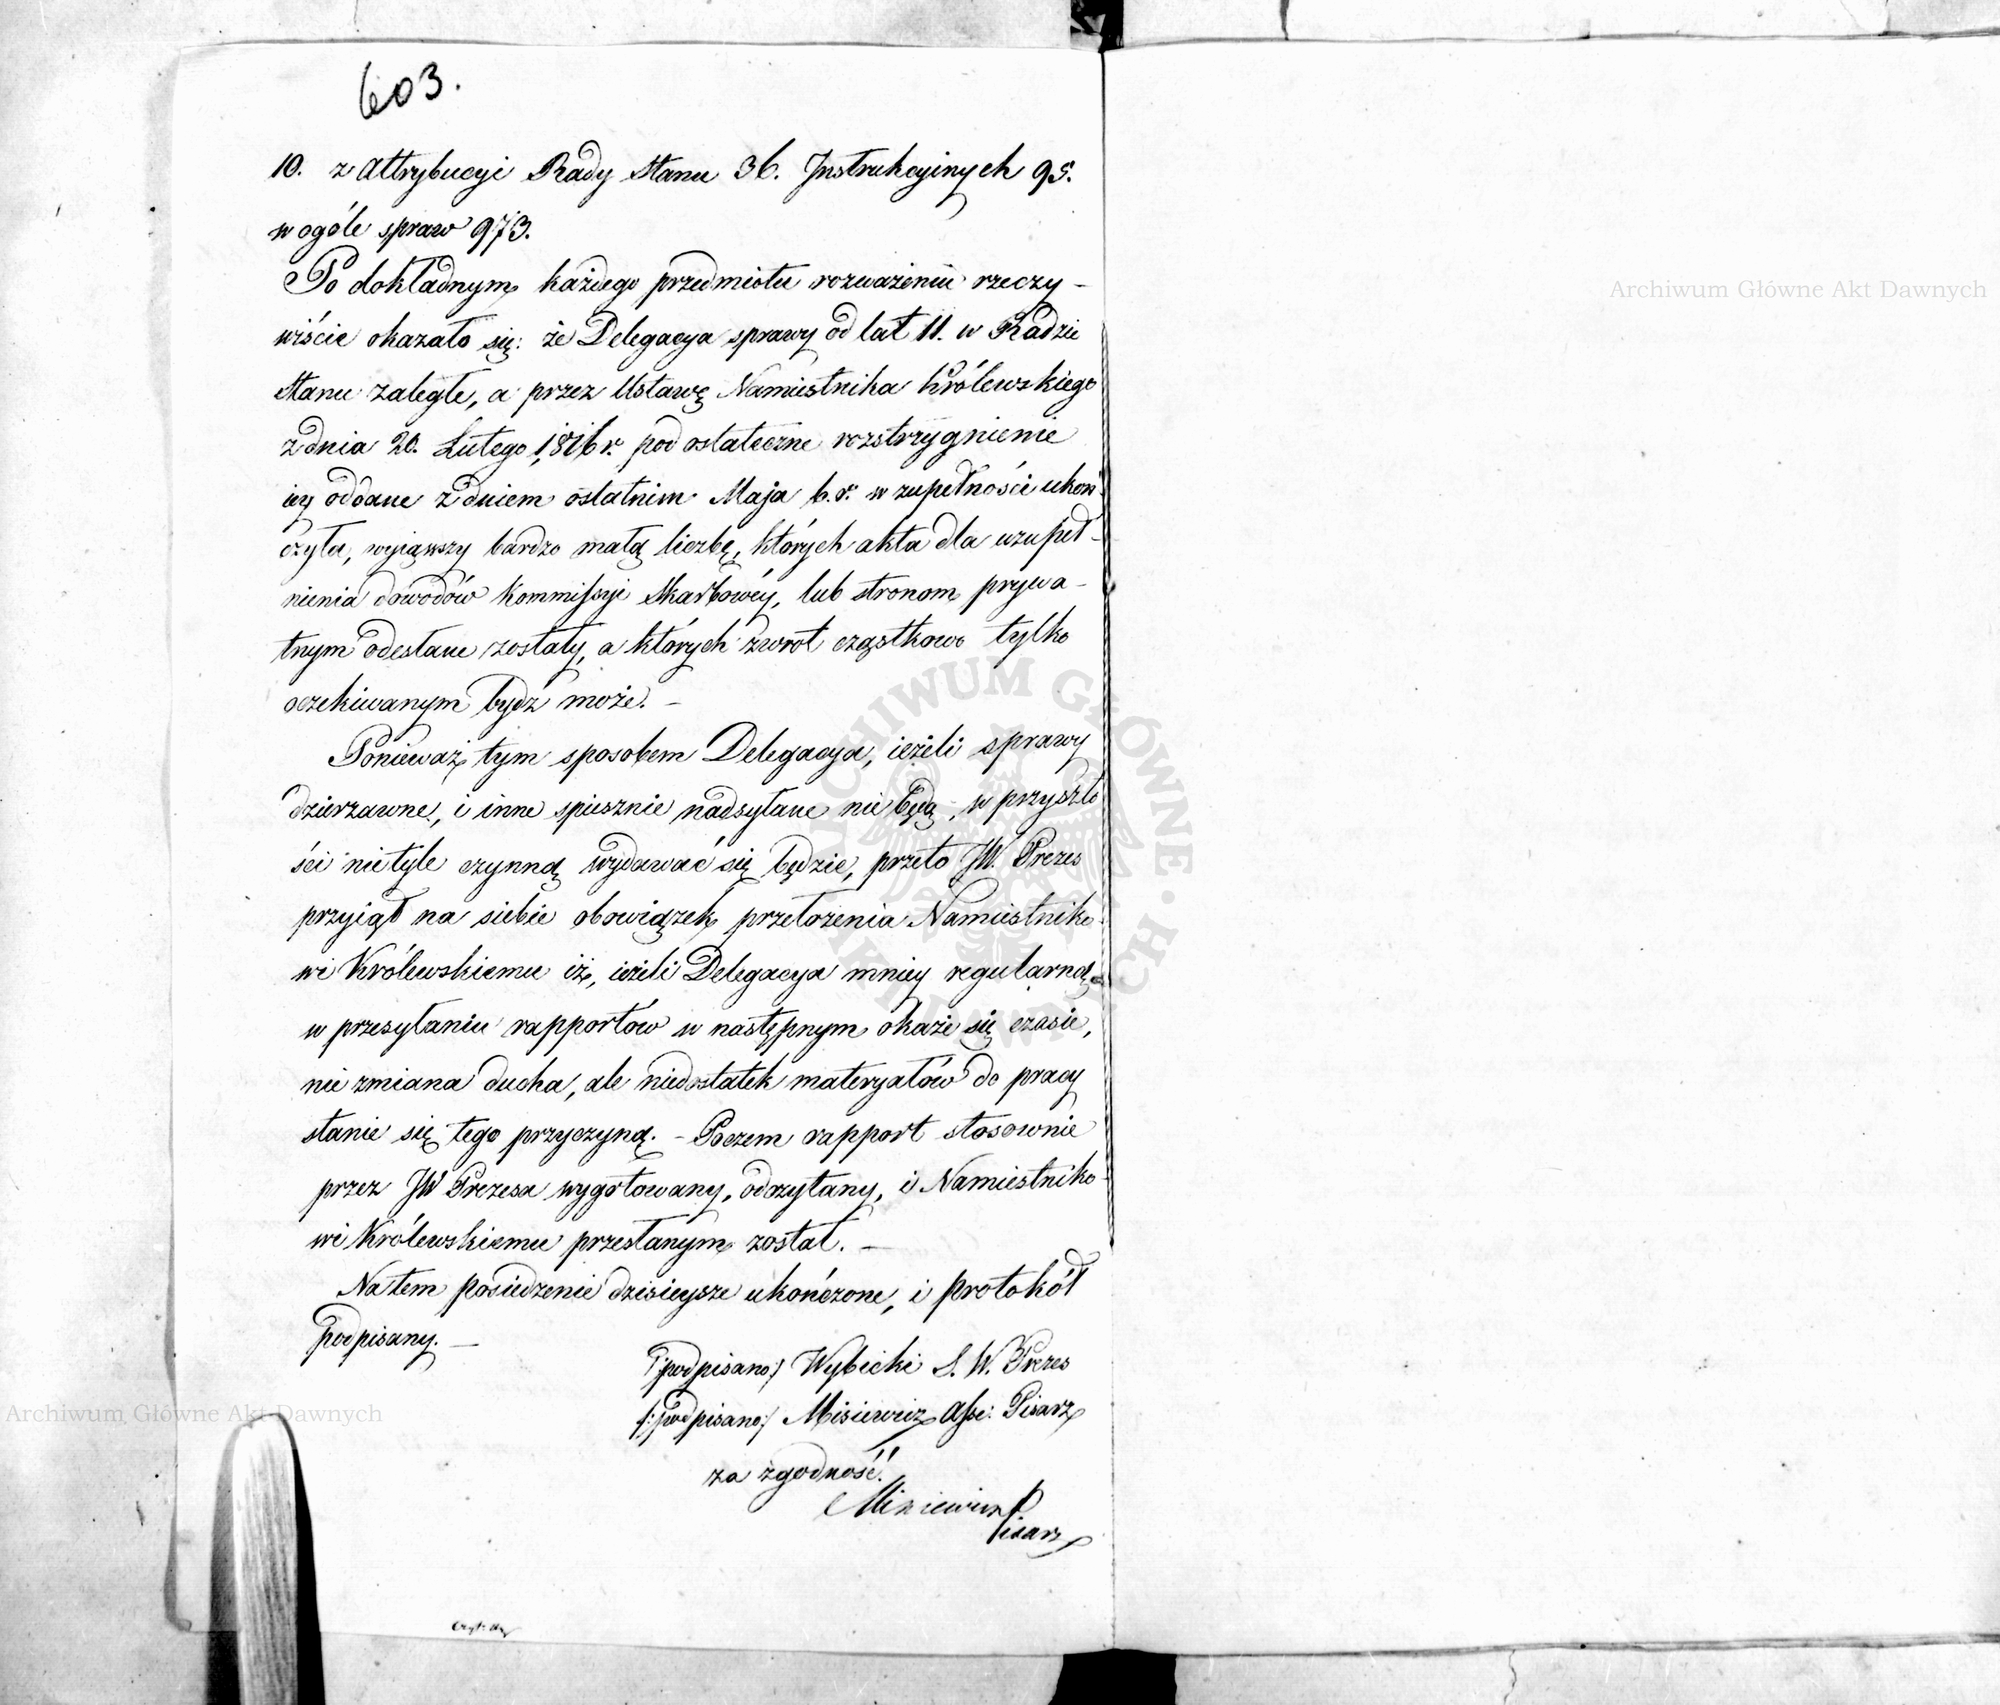 603.
10. z attrybucyi Rady Stanu 36. Instrukcyinych 95.
w ogóle spraw 973.
Po dokładnym każdego przedmiotu rozważeniu rzeczy-
wiście okazało się: że Delegacya sprawy od lat 11. w Radzie
Stanu zaległe, a przez Ustawę Namiestnika Królewskiego
z dnia 20. Lutego 1816 r. pod ostateczne rozstrzygnienie
iey oddane z dniem ostatnim Maja b. r. w zupełności ukoń
czyła, wyiąwszy bardzo małą liczbę, których akta dla uzupeł-
nienia dowodów Kommissyi Skarbowéy, lub stronom prywa-
tnym odesłane zostały, a których zwrot cząstkowo tylko
oczekiwanym bydź może. -
Ponieważ tym sposobem Delegacya, ieżeli sprawy
dzierzawne, i inne spiesznie nadsyłane nie będą, w przyszło
ści nie tyle czynną wydawać się będzie, przeto JW. Prezes
przyiął na siebie obowiązek przełożenia Namiestniko-
wi Królewskiemu iż, ieżeli Delegacya mniey regularną
w przesyłaniu rapportów w następnym okaże się czasie,
nie zmiana ducha, ale niedostatek materyałów do pracy
stanie się tego przyczyną. - Poczem rapport stosownie
przez JW Prezesa wygotowany, odczytany, i Namiestniko-
wi Królewskiemu przesłanym został. -
Na tem posiedzenie dzisieysze ukończone, i protokół
podpisany. -
/:podpisano:/ Wybicki S. W. Prezes
/:podpisano:/ Misiewicz Asse: Pisarz
za zgodność.
Misiewicz Pisarz
Archiwum Główne Akt Dawnych
Archiwum Główne Akt Dawnych
ARCHIWUM GŁÓWNE AKT DAWNYCH